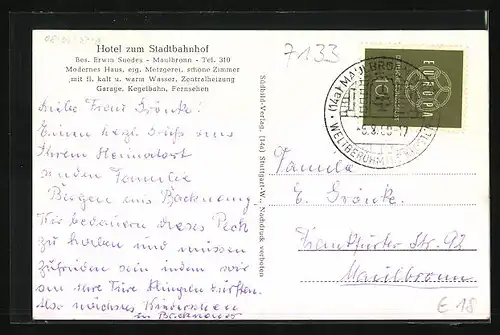 Hotel zum Stadtbahnhof
Bes. Erwin Suedes - Maulbronn - Tel. 310
Modernes Haus, eig. Metzgerei, schöne Zimmer
mit fl. kalt u. warm Wasser, Zentralheizung
Garage, Kegelbahn, Fernsehen
Liebe Frau Grönke!
Einen herzl. Gruß aus
Ihrem Heimatort
senden Familie
Bürgen aus Backnang.
Wir bedauern dieses Pech
zu haben und müssen
zufrieden sein indem wir
an Ihre Türe klingeln dürften.
Also nächstes Wiedersehen
in Backnang
Südbild-Verlag, (14a) Stuttgart-W., Nachdruck verboten
7133
EUROPA
(14a) MAULBRONN
-6.8.60-17
WELTBERÜHMTES
Familie
E. Grönke
Frankfurter Str. 92
Maulbronn
€ 18